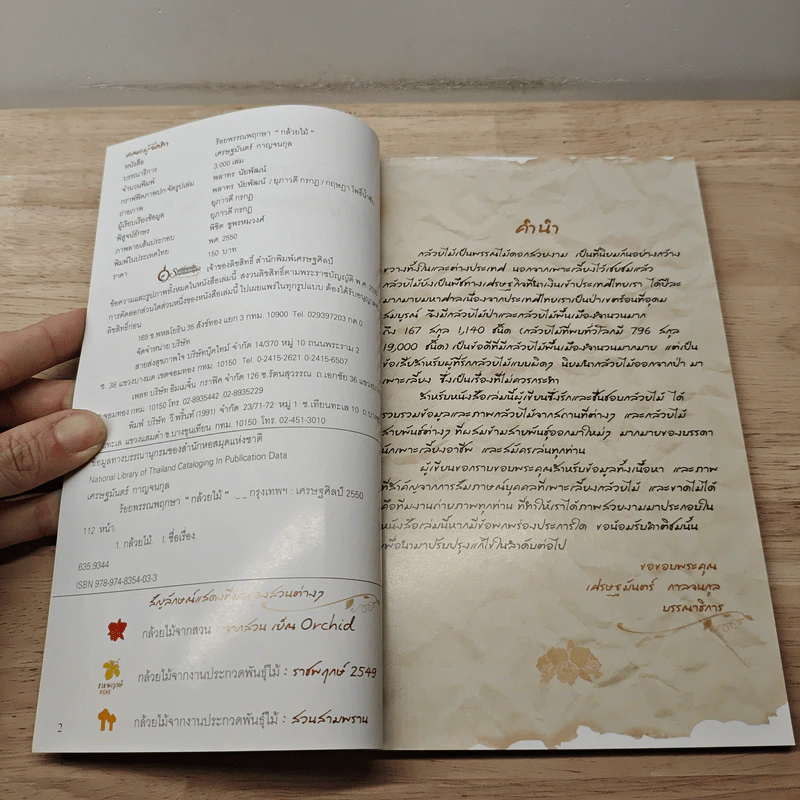 คณะผู้จัดทำ
หนังสือ ร้อยพรรณพฤกษา " กล้วยไม้ "
บรรณาธิการ เศรษฐมันตร์ กาญจนกุล
จำนวนพิมพ์ 3,000 เล่ม
กราฟฟิคภาพปก-จัดรูปเล่ม พลาทร นัยพัฒน์
ถ่ายภาพ พลาทร นัยพัฒน์ / ยุภาวดี กรกฎ / กฤษฎา
ผู้เรียบเรียงข้อมูล ยุภาวดี กรกฎ
พิสูจน์อักษร ยุภาวดี กรกฎ
ภาพลายเส้นประกอบ พิชิต ชูพรหมวงศ์
พิมพ์ในประเทศไทย พศ. 2550
ราคา 150 บาท
เจ้าของลิขสิทธิ์ สำนักพิมพ์เศรษฐศิลป์
ข้อความและรูปภาพทั้งหมดในหนังสือเล่มนี้ สงวนลิขสิทธิ์ตามพระราชบัญญัติ พ.ศ.
การคัดลอกส่วนใดส่วนหนึ่งของหนังสือเล่มนี้ ไปเผยแพร่ในทุกรูปแบบ ต้องได้รับอนุญาต
ลิขสิทธิ์ก่อน
169 ซ.พหลโยธิน 35 สังข์ทอง แยก 3 กทม. 10900 Tel. 029397203 กด 0
จัดจำหน่าย บริษัท
สายส่งสุขภาพใจ บริษัทบุ๊คไทม์ จำกัด 14/370 หมู่ 10 ถนนพระราม 2
ซ. 38 แขวงบางมด เขตจอมทอง กทม. 10150 Tel. 0-2415-2621 0-2415-6507
เพลท บริษัท อิมเมจิ้น กราฟิค จำกัด 126 ซ.รัตนสุวรรณ ถ.เอกชัย 36 แขวง
จอมทอง กทม. 10150 โทร. 02-8935442 02-8935229
พิมพ์ บริษัท วี.พริ้นท์ (1991) จำกัด 23/71-72 หมู่ 1 ซ.เทียนทะเล 10
ทะเล แขวงแสมดำ ข.บางขุนเทียน กทม. 10150 โทร. 02-451-3010
ข้อมูลทางบรรณานุกรมของสำนักหอสมุดแห่งชาติ
National Library of Thailand Cataloging In Publication Data
เศรษฐมันตร์ กาญจนกุล
ร้อยพรรณพฤกษา " กล้วยไม้ " _ _ กรุงเทพฯ : เศรษฐศิลป์ 2550
112 หน้า.
1. กล้วยไม้. I. ชื่อเรื่อง.
635.9344
ISBN 978-974-8354-03-3
สัญลักษณ์แสดงที่มาของสวนต่างๆ
กล้วยไม้จากสวน : จากสวน เย็ณ Orchid
กล้วยไม้จากงานประกวดพันธุ์ไม้ : ราชพฤกษ์ 2549
กล้วยไม้จากงานประกวดพันธุ์ไม้ : สวนสามพราน
2
คำนำ
กล้วยไม้เป็นพรรณไม้ดอกสวยงาม เป็นที่นิยมกันอย่างกว้าง
ขวางทั้งในและต่างประเทศ นอกจากเพาะเลี้ยงไว้เชยชมแล้ว
กล้วยไม้ยังเป็นพืชทางเศรษฐกิจที่นำเงินเข้าประเทศไทยเรา ได้ปีละ
มากมายมหาศาลเนื่องจากประเทศไทยเราเป็นป่าเขตร้อนที่อุดม
สมบูรณ์ จึงมีกล้วยไม้ป่าและกล้วยไม้พื้นเมืองจำนวนมาก
ถึง 167 สกุล 1,140 ชนิด (กล้วยไม้ที่พบทั่วโลกมี 796 สกุล
19,000 ชนิด) เป็นข้อดีที่มีกล้วยไม้พื้นเมืองจำนวนมากมาย แต่เป็น
ข้อเสียสำหรับผู้ที่รักกล้วยไม้แบบผิดๆ นิยมนำกล้วยไม้ออกจากป่า มา
เพาะเลี้ยง ซึ่งเป็นเรื่องที่ไม่ควรกระทำ
สำหรับหนังสือเล่มนี้ผู้เขียนซึ่งรักและชื่นชอบกล้วยไม้ ได้
รวบรวมข้อมูลและภาพกล้วยไม้จากสถานที่ต่างๆ และกล้วยไม้
สายพันธุ์ต่างๆ ที่ผสมข้ามสายพันธุ์ออกมาใหม่ๆ มากมายของบรรดา
นักเพาะเลี้ยงอาชีพ และสมัครเล่นทุกท่าน
ผู้เขียนขอกราบขอบพระคุณสำหรับข้อมูลทั้งเนื้อหา และภาพ
ที่สำคัญจากการสัมภาษณ์บุคคลที่เพาะเลี้ยงกล้วยไม้ และขาดไม่ได้
คือทีมงานถ่ายภาพทุกท่าน ที่ทำให้เราได้ภาพสวยงามมาประกอบใน
หนังสือเล่มนี้หากมีข้อพกพร่องประการใด ขอน้อมรับคำติชมนั้น
เพื่อนำมาปรับปรุงแก้ไขในลำดับต่อไป
ขอขอบพระคุณ
เศรษฐมันตร์ กาลจนกุล
บรรณาธิการ